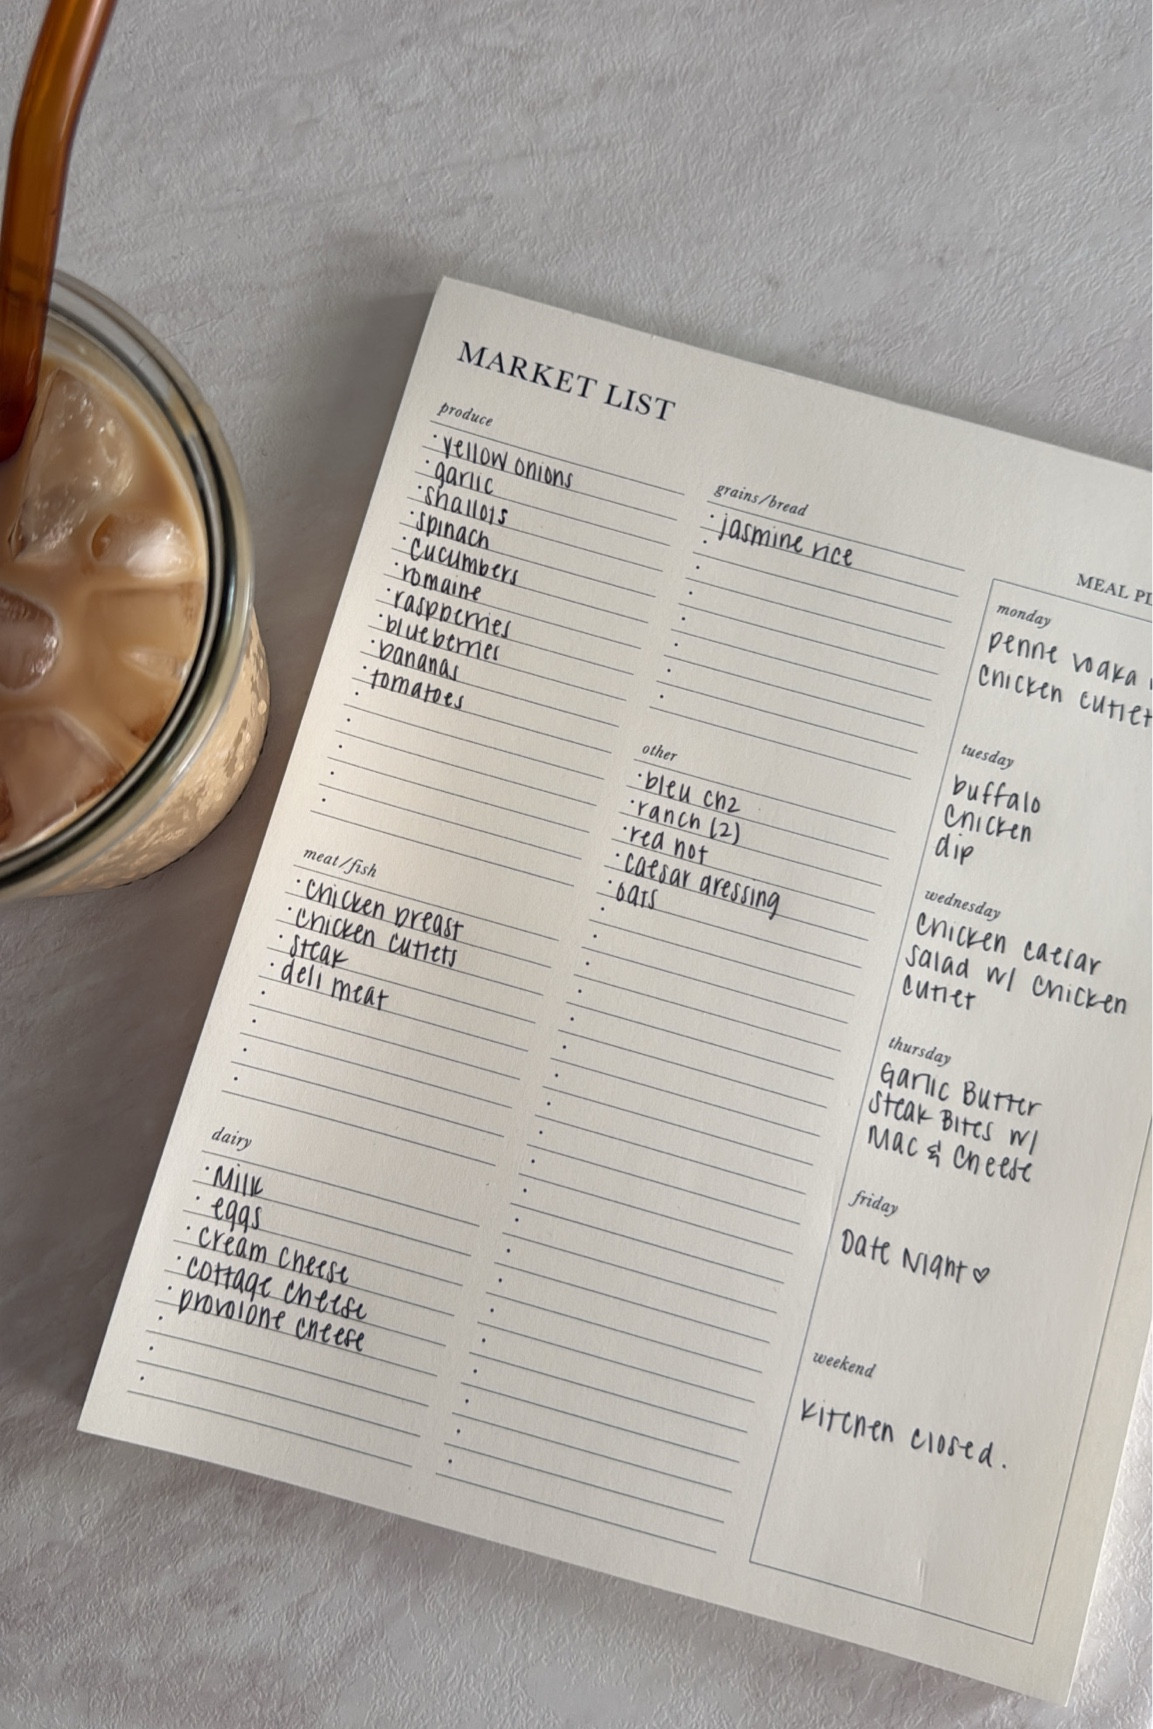 MARKET LIST
produce
yellow onions
garlic
shallots
spinach
cucumbers
romaine
raspberries
blueberries
bananas
tomatoes
meat/fish
chicken breast
chicken cutlets
steak
deli meat
dairy
Milk
eggs
cream cheese
cottage cheese
provolone cheese
grains/bread
jasmine rice
other
bleu chz
ranch (2)
red hot
caesar dressing
oats
MEAL
monday
penne vodka
chicken cutlet
tuesday
buffalo
chicken
dip
wednesday
chicken caesar
salad w/ chicken
cutlet
thursday
Garlic Butter
Steak Bites w/
Mac & Cheese
friday
Date Night ♡
weekend
Kitchen closed.